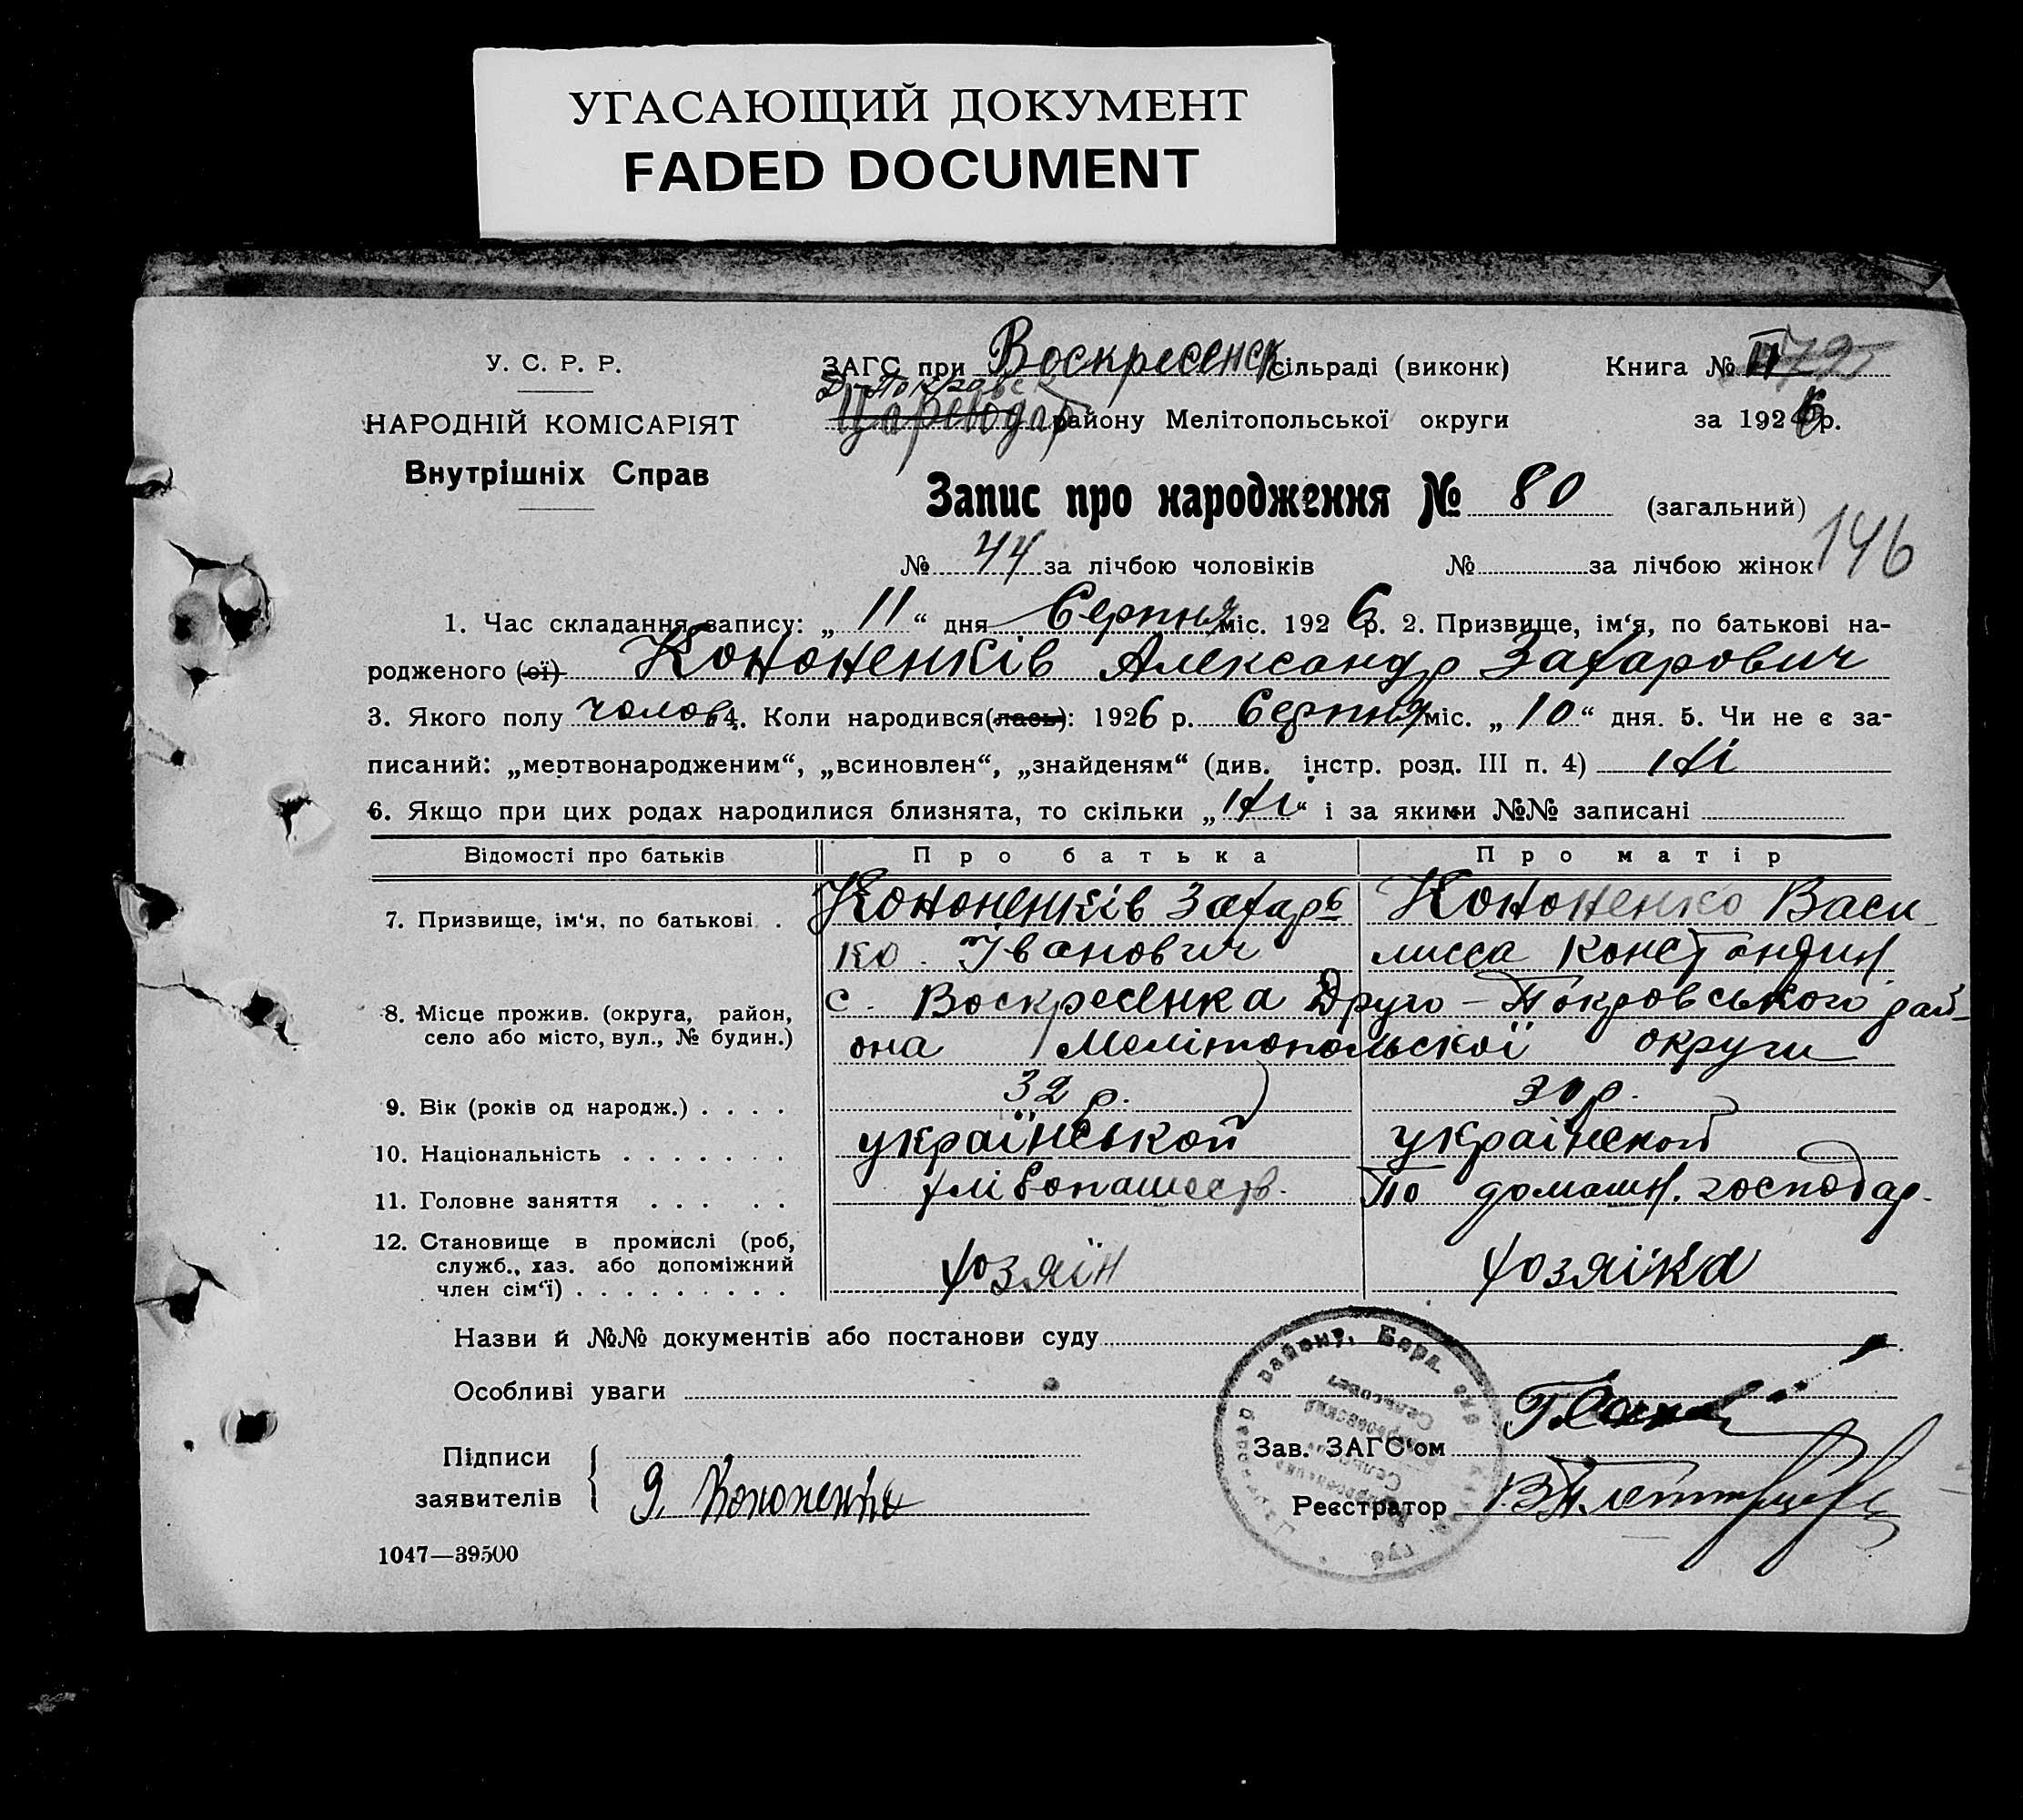 УГАСАЮЩИЙ ДОКУМЕНТ
FADED DOCUMENT
У. С. Р. Р.
НАРОДНІЙ КОМІСАРІЯТ
Внутрішніх Справ
ЗАГС при Воскресенск сільраді (виконк) Книга № II
Д-Покровск
Цареводар району Мелітопольської округи за 1926 р.
Запис про народження № 80 (загальний)
146
№ 44 за лічбою чоловіків № за лічбою жінок
1. Час складання запису: „ 11 “ дня Серпня міс. 1926 р. 2. Призвище, ім‘я, по батькові на-
родженого (ої) Кононенків Александр Захарович
3. Якого полу чолов. 4. Коли народився(лась): 1926 р. Серпня міс. „ 10 “ дня. 5. Чи не є за-
писаний: „мертвонародженим“, „всиновлен“, „знайденям“ (див. інстр. розд. III п. 4) Ні
6. Якщо при цих родах народилися близнята, то скільки „ Ні “ і за якими №№ записані
Відомості про батьків Про батька Про матір
7. Призвище, ім‘я, по батькові . Кононенків Захарь Кононенко Васи
Іванович лисса Констандин
8. Місце прожив. (округа, район, с. Воскресенка Друго-Покровського рай-
село або місто, вул., № будин.) она Мелітопольскої округи
9. Вік (років од народж.) . . . . 32 р. 30 р.
10. Національність . . . . . . . українськой українской
11. Головне заняття . . . . . хлібопашеств. По домашн. господар.
12. Становище в промислі (роб,
служб., хаз. або допоміжний хозяін хозяіка
член сім‘ї) . . . . . . . . .
Назви й №№ документів або постанови суду
Особливі уваги
району, Берд. окр.
Підписи
заявителів
З. Кононенко
Зав. ЗАГС‘ом
Реєстратор
1047—39500